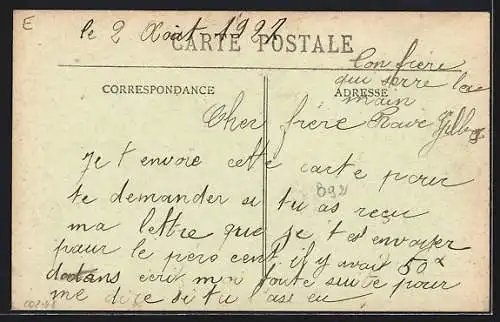 E
le 2 Aout 1921
CARTE POSTALE
CORRESPONDANCE
ADRESSE
Ton frère
qui serre la
main
Cher frère
Je t envoie cette carte pour
te demander si tu as reçu
892
ma lettre que je t'es envoyer
pour le pero cent il y avait 50
ecri moi toute suite pour
me dire si tu l'as eu